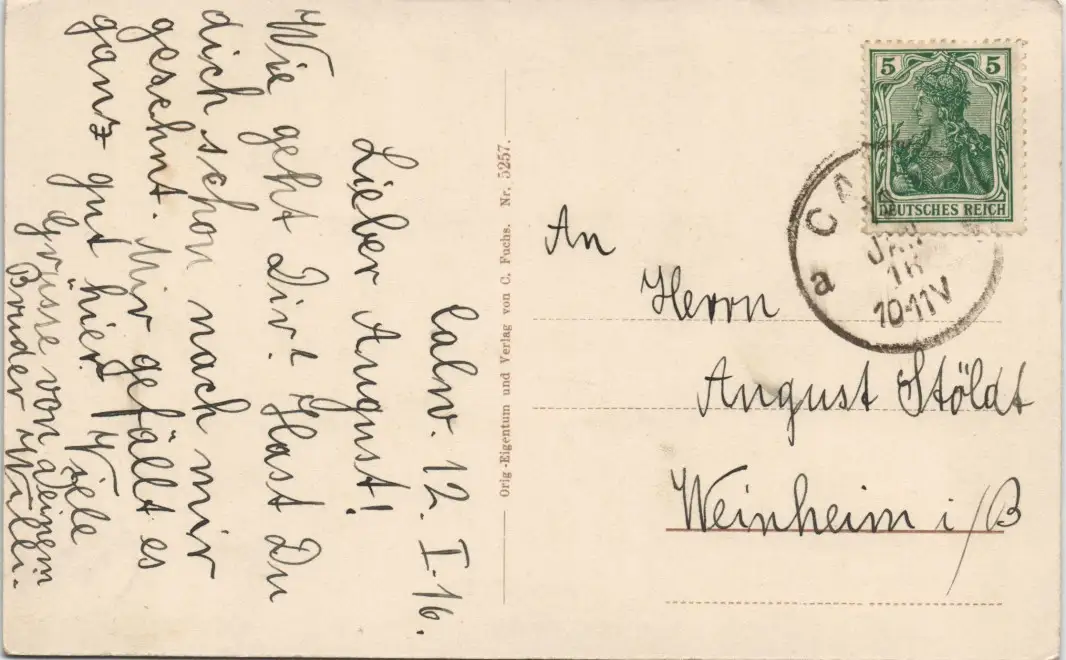 Calw. 12. I. 16.
Lieber August!
Wie geht Dir? Hast Du
dich schon nach mir
gesehnt. Mir gefällt es
ganz gut hier. Viele
Grüsse von deinem
Bruder Willi.
Orig.-Eigentum und Verlag von C. Fuchs. Nr. 5257.
5 5
DEUTSCHES REICH
CA
JAN
16
10-11V
a
An
Herrn
August Stöldt
Weinheim i/B